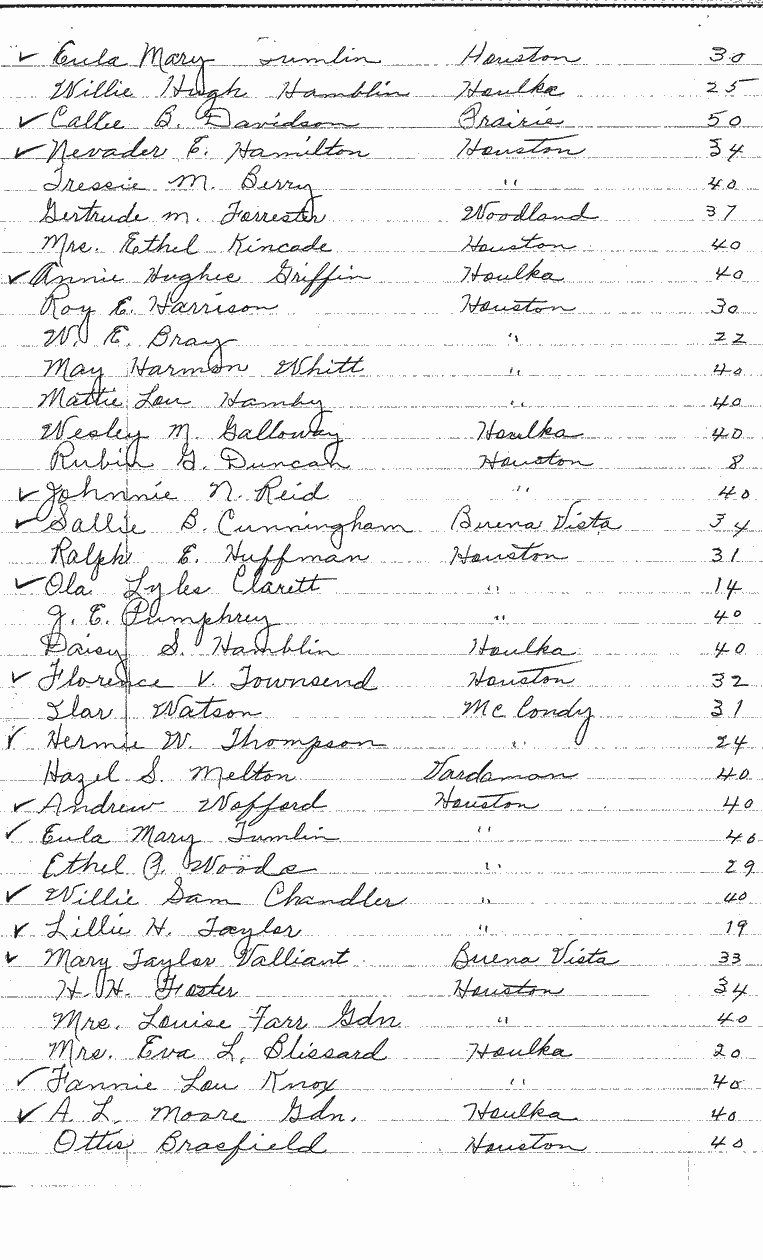 ✓ Eula Mary Tumlin Houston 30
Willie Hugh Hamblin Houlka 25
✓ Callie B. Davidson Prairie 50
✓ Nevader E. Hamilton Houston 34
Tressie M. Berry " 40
Gertrude M. Forrester Woodland 37
Mrs. Ethel Kincade Houston 40
✓ Annie Hughes Griffin Houlka 40
Roy E. Harrison Houston 30
W. E. Bray " 22
May Harmon Whitt " 40
Mattie Lou Hamby " 40
Wesley M. Galloway Houlka 40
Rubin G. Duncan Houston 8
✓ Johnnie N. Reid " 40
✓ Sallie B. Cunningham Buena Vista 34
Ralph E. Huffman Houston 31
✓ Ola Lyles Clarett " 14
J. E. Pumphrey " 40
Daisy S. Hamblin Houlka 40
✓ Florence V. Townsend Houston 32
Ilar Watson McCondy 31
✓ Hermie W. Thompson " 24
Hazel S. Melton Vardaman 40
✓ Andrew Wofford Houston 40
✓ Eula Mary Tumlin " 40
Ethel P. Woods " 29
✓ Willie Sam Chandler " 40
✓ Lillie H. Taylor " 19
✓ Mary Taylor Valliant Buena Vista 33
H. H. Foster Houston 34
Mrs. Louise Farr Gdn. " 40
Mrs. Eva L. Blissard Houlka 20
✓ Fannie Lou Knox " 40
✓ A. L. Moore Gdn. Houlka 40
Ottis Brasfield Houston 40